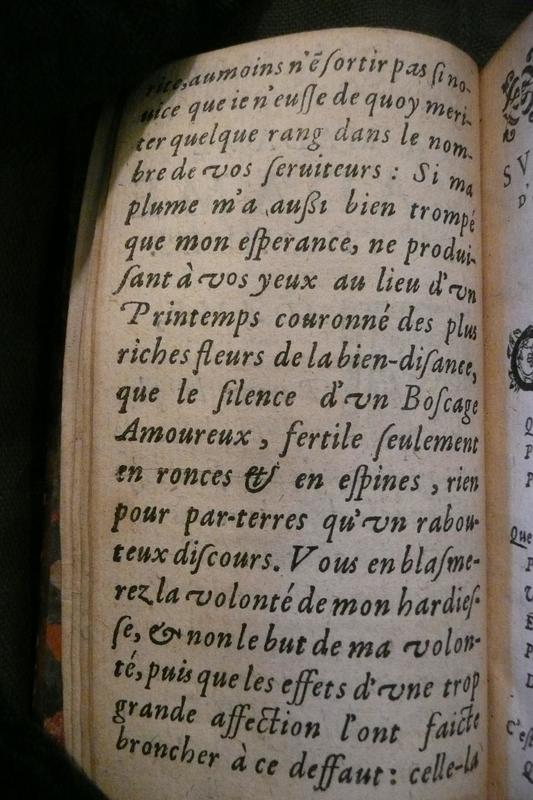 rice, aumoins n'ẽ ſortir pas ſi no-
uice que ie n'euſſe de quoy meri-
ter quelque rang dans le nom-
bre de vos ſeruiteurs : Si ma
plume m'a außi bien trompé
que mon eſperance, ne produi-
ſant à vos yeux au lieu d'vn
Printemps couronné des plus
riches fleurs de la bien-diſance,
que le ſilence d'vn Boſcage
Amoureux, fertile ſeulement
en ronces & en eſpines, rien
pour par-terres qu'vn rabou-
teux diſcours. Vous en blaſme-
rez la volonté de mon hardieſ-
ſe, & non le but de ma volon-
té, puis que les effets d'vne trop
grande affection l'ont faicte
broncher à ce deffaut : celle-là
S V
D'
Que
C'eſt